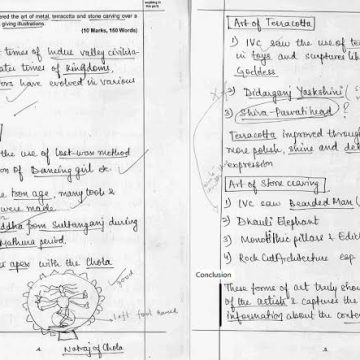 ered the art of metal, terracotta and stone carving over a
giving illustrations.
(10 Marks, 150 Words)
t times of Indus valley civiliza-
ates times of kingdoms.
have evolved in various
the use of lost-wax method
on of Dancing girl &
Iron age, many tools &
were made.
ddha from Sultanganj during
Mathura period.
apex with the Chola
Good
left foot raised
Natraj of Chola
anything in
this part
Art of Terracotta
1) IVC saw the use of te
in toys and
Goddess
2) Didarganj Yaskshini
3) Shiva-Parvati head ?
Terracotta improved through
more polish, shine and det
expression
Art of stone carving
1) IVC saw Bearded Man (
2) Dhauli Elephant
3) Monolithic pillars & Edi
4) Rock Cut Architecture esp
Conclusion
These forms of art truly show
of the artists & captures the
information about the conte